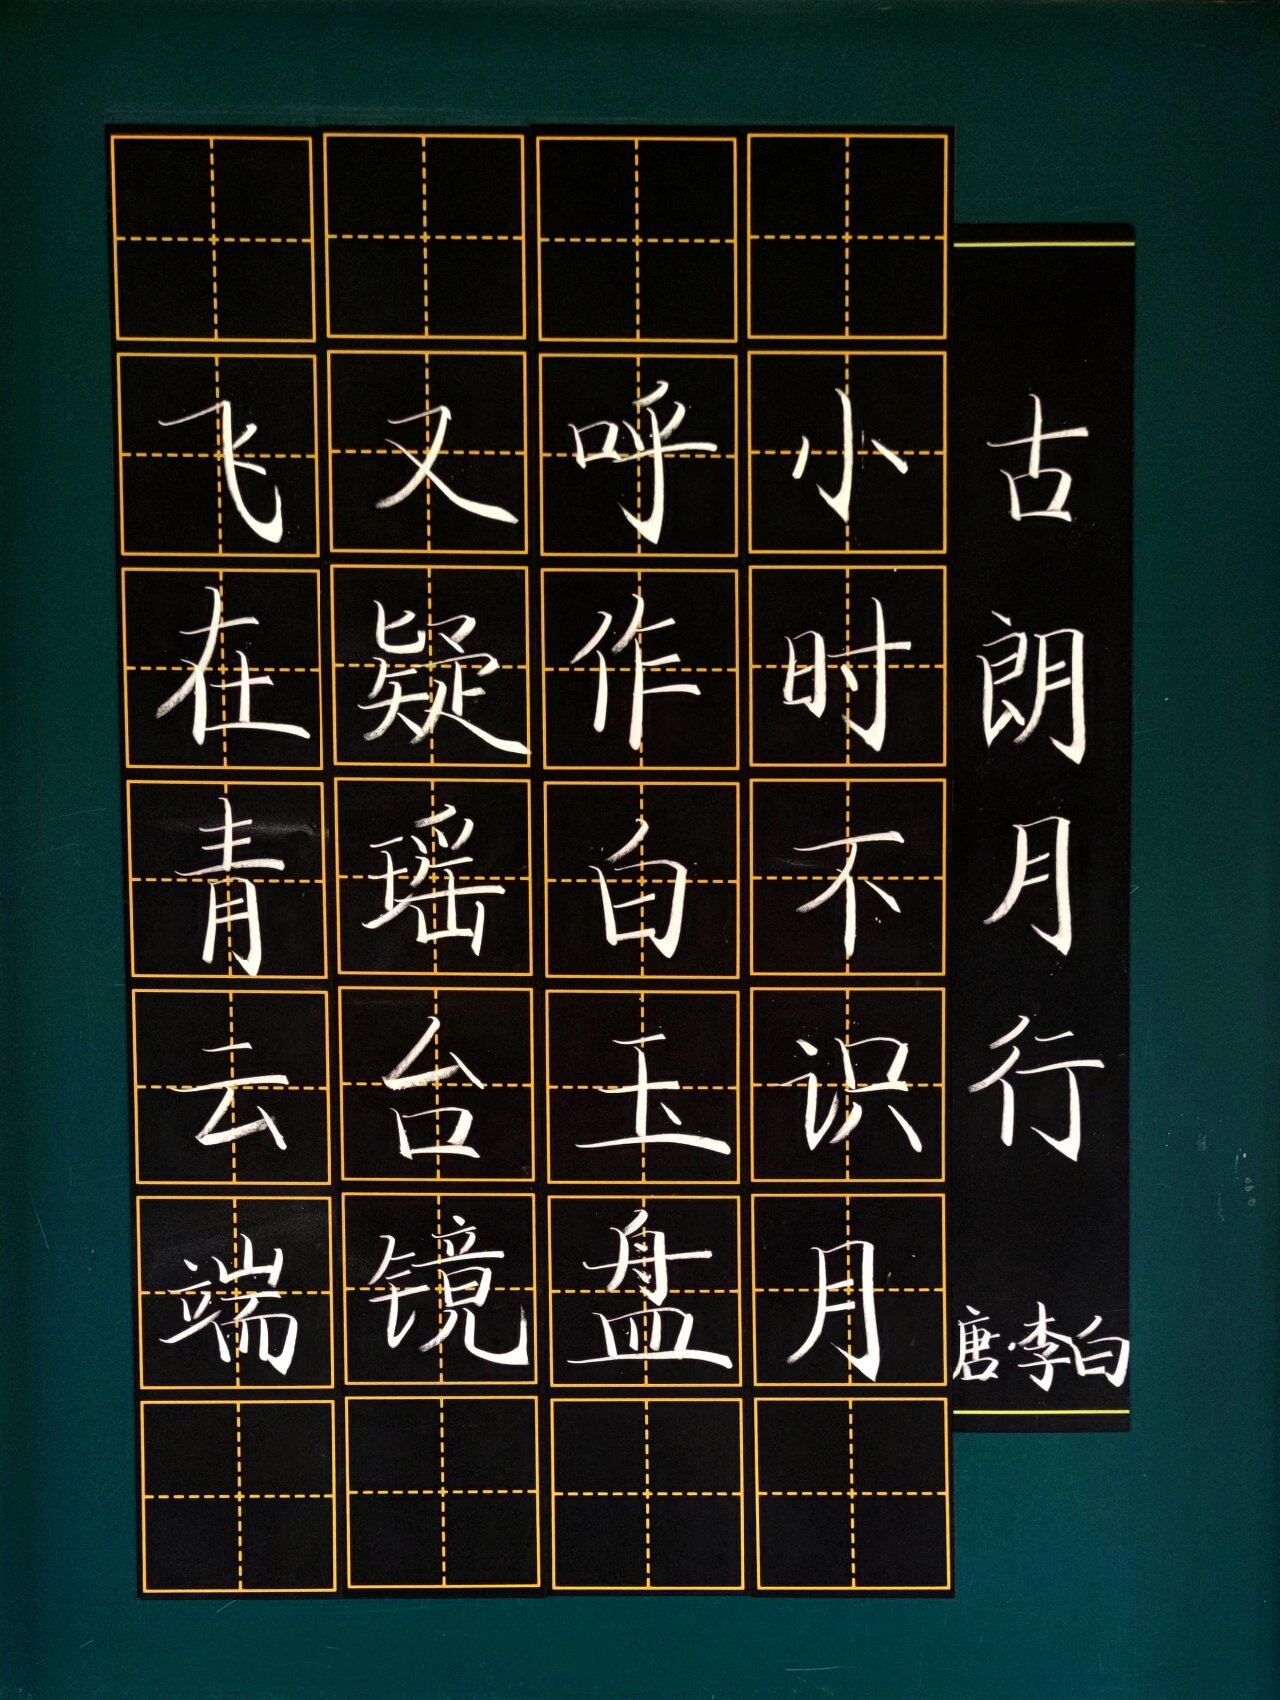 古朗月行
唐·李白
小时不识月
呼作白玉盘
又疑瑶台镜
飞在青云端